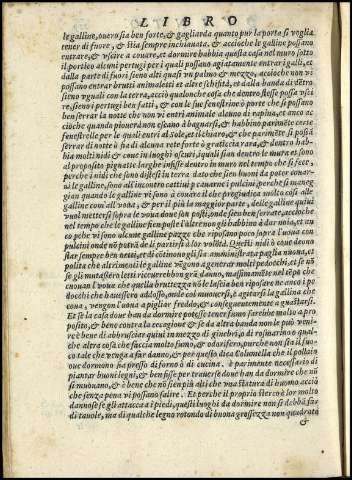 LIBRO
le galline, ouero sia ben forte, & gagliarda quanto pur la porta si voglia
tener di fuore, & stia sempre inchiauata. & accioche le galline possano
entrare, & vscire a couare, et dormire habbia questa casa nel muro sotto
il portico alcuni pertugi per i quali possano agiatamente entrar i galli, et
dalla parte di fuori sieno alti quasi vn palmo e mezzo, accioche non vi
possano entrar brutti animaletti et altre schifità, et dalla banda di dētro
sieno vguali con la terra, acciò qualonche cosa che dentro stesse possa vsci
re, sieno i pertugi ben fatti, & con le sue fenestrine ò porte che si possano
ben serrar la notte che non vi entri animale alcuno di rapina, et anco ac
cioche quando piouerà non escano à bagnarsi, & habbino parimēte certe
fenestrelle per le quali entri al Sole, et il chiaro, & che parimēte si possā
serrar di notte ò sia di alcuna rete forte ò graticcia rara, & dentro hab-
bia molti nidi & come in luoghi oscuri, i quali sian dentro in mura et sono
al proposito pignatte larghe infisse dentro in muro nel tempo che si fece,
perche i nidi che sono distesi in terra dato che sien buoni da poter couar-
ui le galline, sono all'incontro cattiui p cauarne i pulcini, perche si maneg
gian quando le galline vi sono à couare il che pregiudica molto cosi alle
galline com'all'voua, & per il più la maggior parte, delle galline quiui
vuol mettersi sopra le voua doue son posti, onde sien ben serrate, accioche
nel tempo che le galline sien poste l'altre non gli habbino à dar noia, et an
co pche vi sono alcune galline pazze che riposano poco sopra l'uoua con
pulcini onde nō potrà de li partirsi à lor volōtà. Questi nidi ò cque deono
star sempre ben netti, et di cōtinuo gli sia amministrata paglia nuoua, et
polita che altrimenti le galline vegono a generar molti pedocchi, et se nō
se gli mutassero letti riceuerebbon grā danno, massimamēte nel tēpo che
couan l'voua che quella bruttezza nō le lascia ben riposare ne anco i pe
docchi che hauessero addosso, onde col mouersi, & agitarsi la gallina che
coua, vengon l'voua a pigliar freddo, & conseguentemente a guastarsi.
Et se la casa doue han da dormire potesse tener fumo sarebbe molto a pro
posito, & bene contra la cecagione & se da altra banda non le può veni-
re è bene di abbrusciar quiui in mezzo di ginebro, ò di rosmarino o qual-
che altra cosa che faccia molto fumo, & odorifero, purche non sia il fuo-
co tale che venga a far danno, & per questo dica Columella che il pollaio
oue dormono ha presso da forno ò di cucina. è parimente necessario di
piantar buoni legni, & ben fisse per trauerse doue han da dormire che nō
si muouano, & è bene che nō sien più alti che vna statura di huomo acciò
che senza pena vi possano salire. Et perche il proprio stercò lor molto
dannoso è se gli attacca a i piedi, questi luoghi da dormire non si debbā far
di tauole, ma di qualche legno rotondo di buona grossezza non quadrato
&